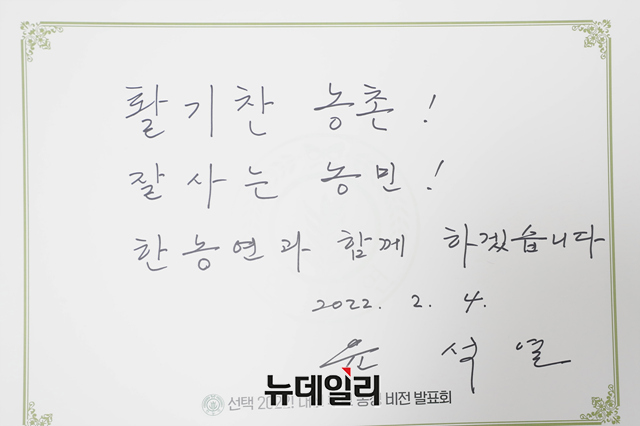 활기찬 농촌!
잘사는 농민!
한농연과 함께 하겠습니다
2022. 2. 4.
윤석열
뉴데일리
선택 202 비전 발표회